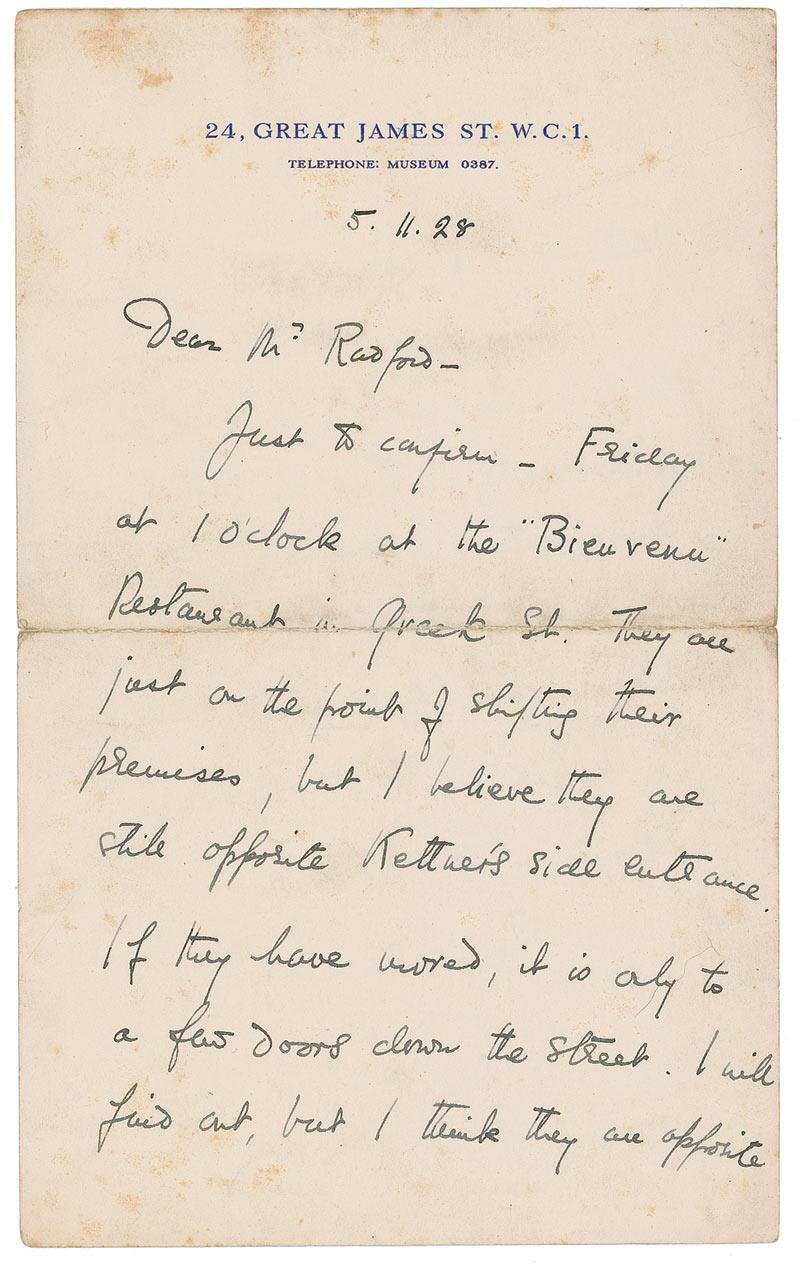 24, GREAT JAMES ST. W.C.1.
TELEPHONE: MUSEUM 0387.
5. 11. 28
Dear Mr Radford –
Just to confirm – Friday
at 1 o'clock at the "Bienvenu"
Restaurant in Greek St. They are
just on the point of shifting their
premises, but I believe they are
still opposite Kettner's side entrance.
If they have moved, it is only to
a few doors down the street. I will
find out, but I think they are opposite